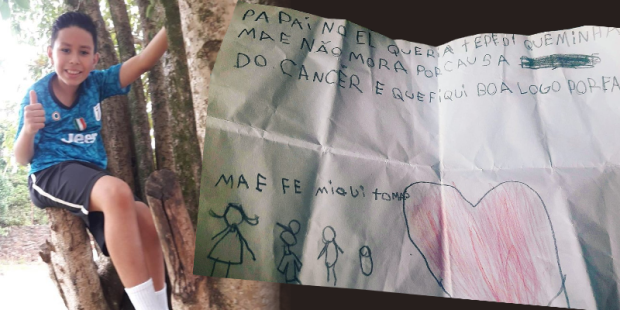 PAPAI NOEL QUERIA TEPEDI QUEMINHA
MAE NÃO MORA PORCAUSA
DO CANCÊR E QUEFIQUI BOA LOGO PORFA
MAE FE miqui tomas
Jeep